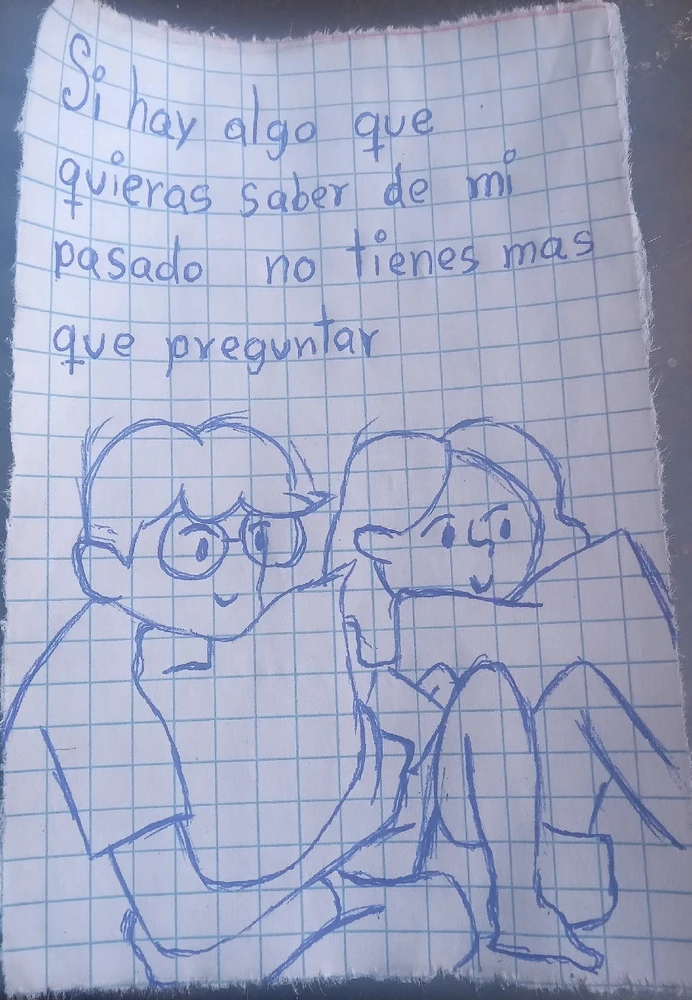 Si hay algo que
quieras saber de mi
pasado no tienes mas
que preguntar